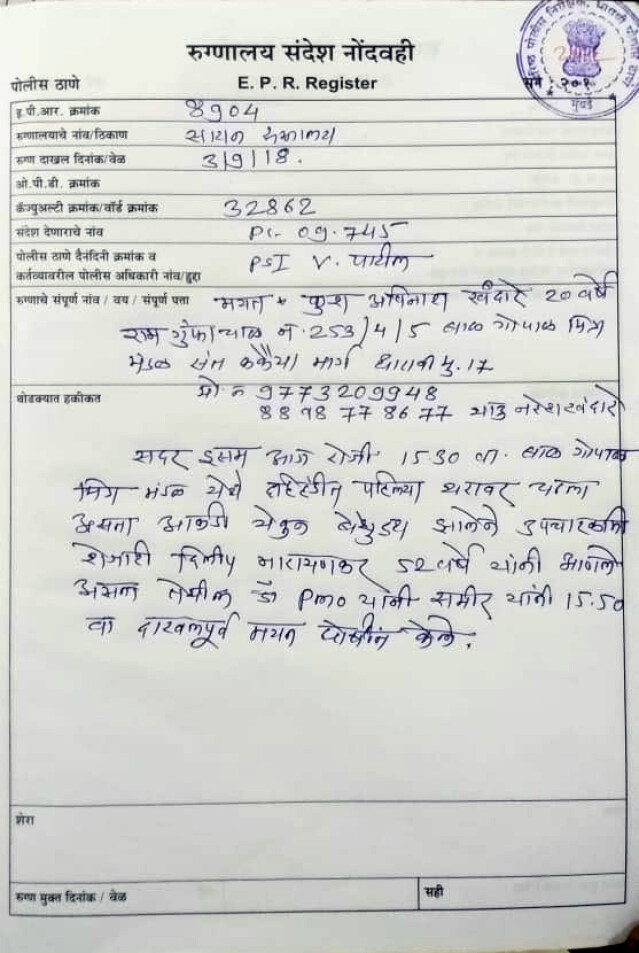 रुग्णालय संदेश नोंदवही
पोलीस ठाणे E. P. R. Register
मुंबई
इ.पी.आर. क्रमांक 8904
रुग्णालयाचे नांव/ठिकाण सायन रुग्णालय
रुग्ण दाखल दिनांक/वेळ 3/9/18.
ओ.पी.डी. क्रमांक
कॅज्युअल्टी क्रमांक/वॉर्ड क्रमांक 32862
संदेश देणाराचे नांव PC- 09.745
पोलीस ठाणे दैनंदिनी क्रमांक व
कर्तव्यावरील पोलीस अधिकारी नांव/हुद्दा PSI V. पाटील
रुग्णाचे संपूर्ण नांव / वय / संपूर्ण पत्ता मयत कुश अविनाश खंदारे 20 वर्षे
राम गुंफा चाळ न. 253/4/5 बाळ गोपाळ मित्र
मंडळ संत कक्कैया मार्ग धारावी मु. 17
मो न 9773209948
थोडक्यात हकीकत 8898778677 नरेश खंदारे
सदर इसम आज रोजी 15.30 वा. बाळ गोपाळ
मित्र मंडळ येथे दहिहंडीत पहिल्या थरावर चढला
असता आकडी येवुन बेशुद्ध झालेने उपचारकामी
शेजारी दिलीप नारायणकर 52 वर्षे यांनी आणले
असता तेथील डॉ PMO यांनी समीर यांनी 15.50
वा दाखलपूर्व मयत घोषीत केले.
शेरा
रुग्ण मुक्त दिनांक / वेळ सही